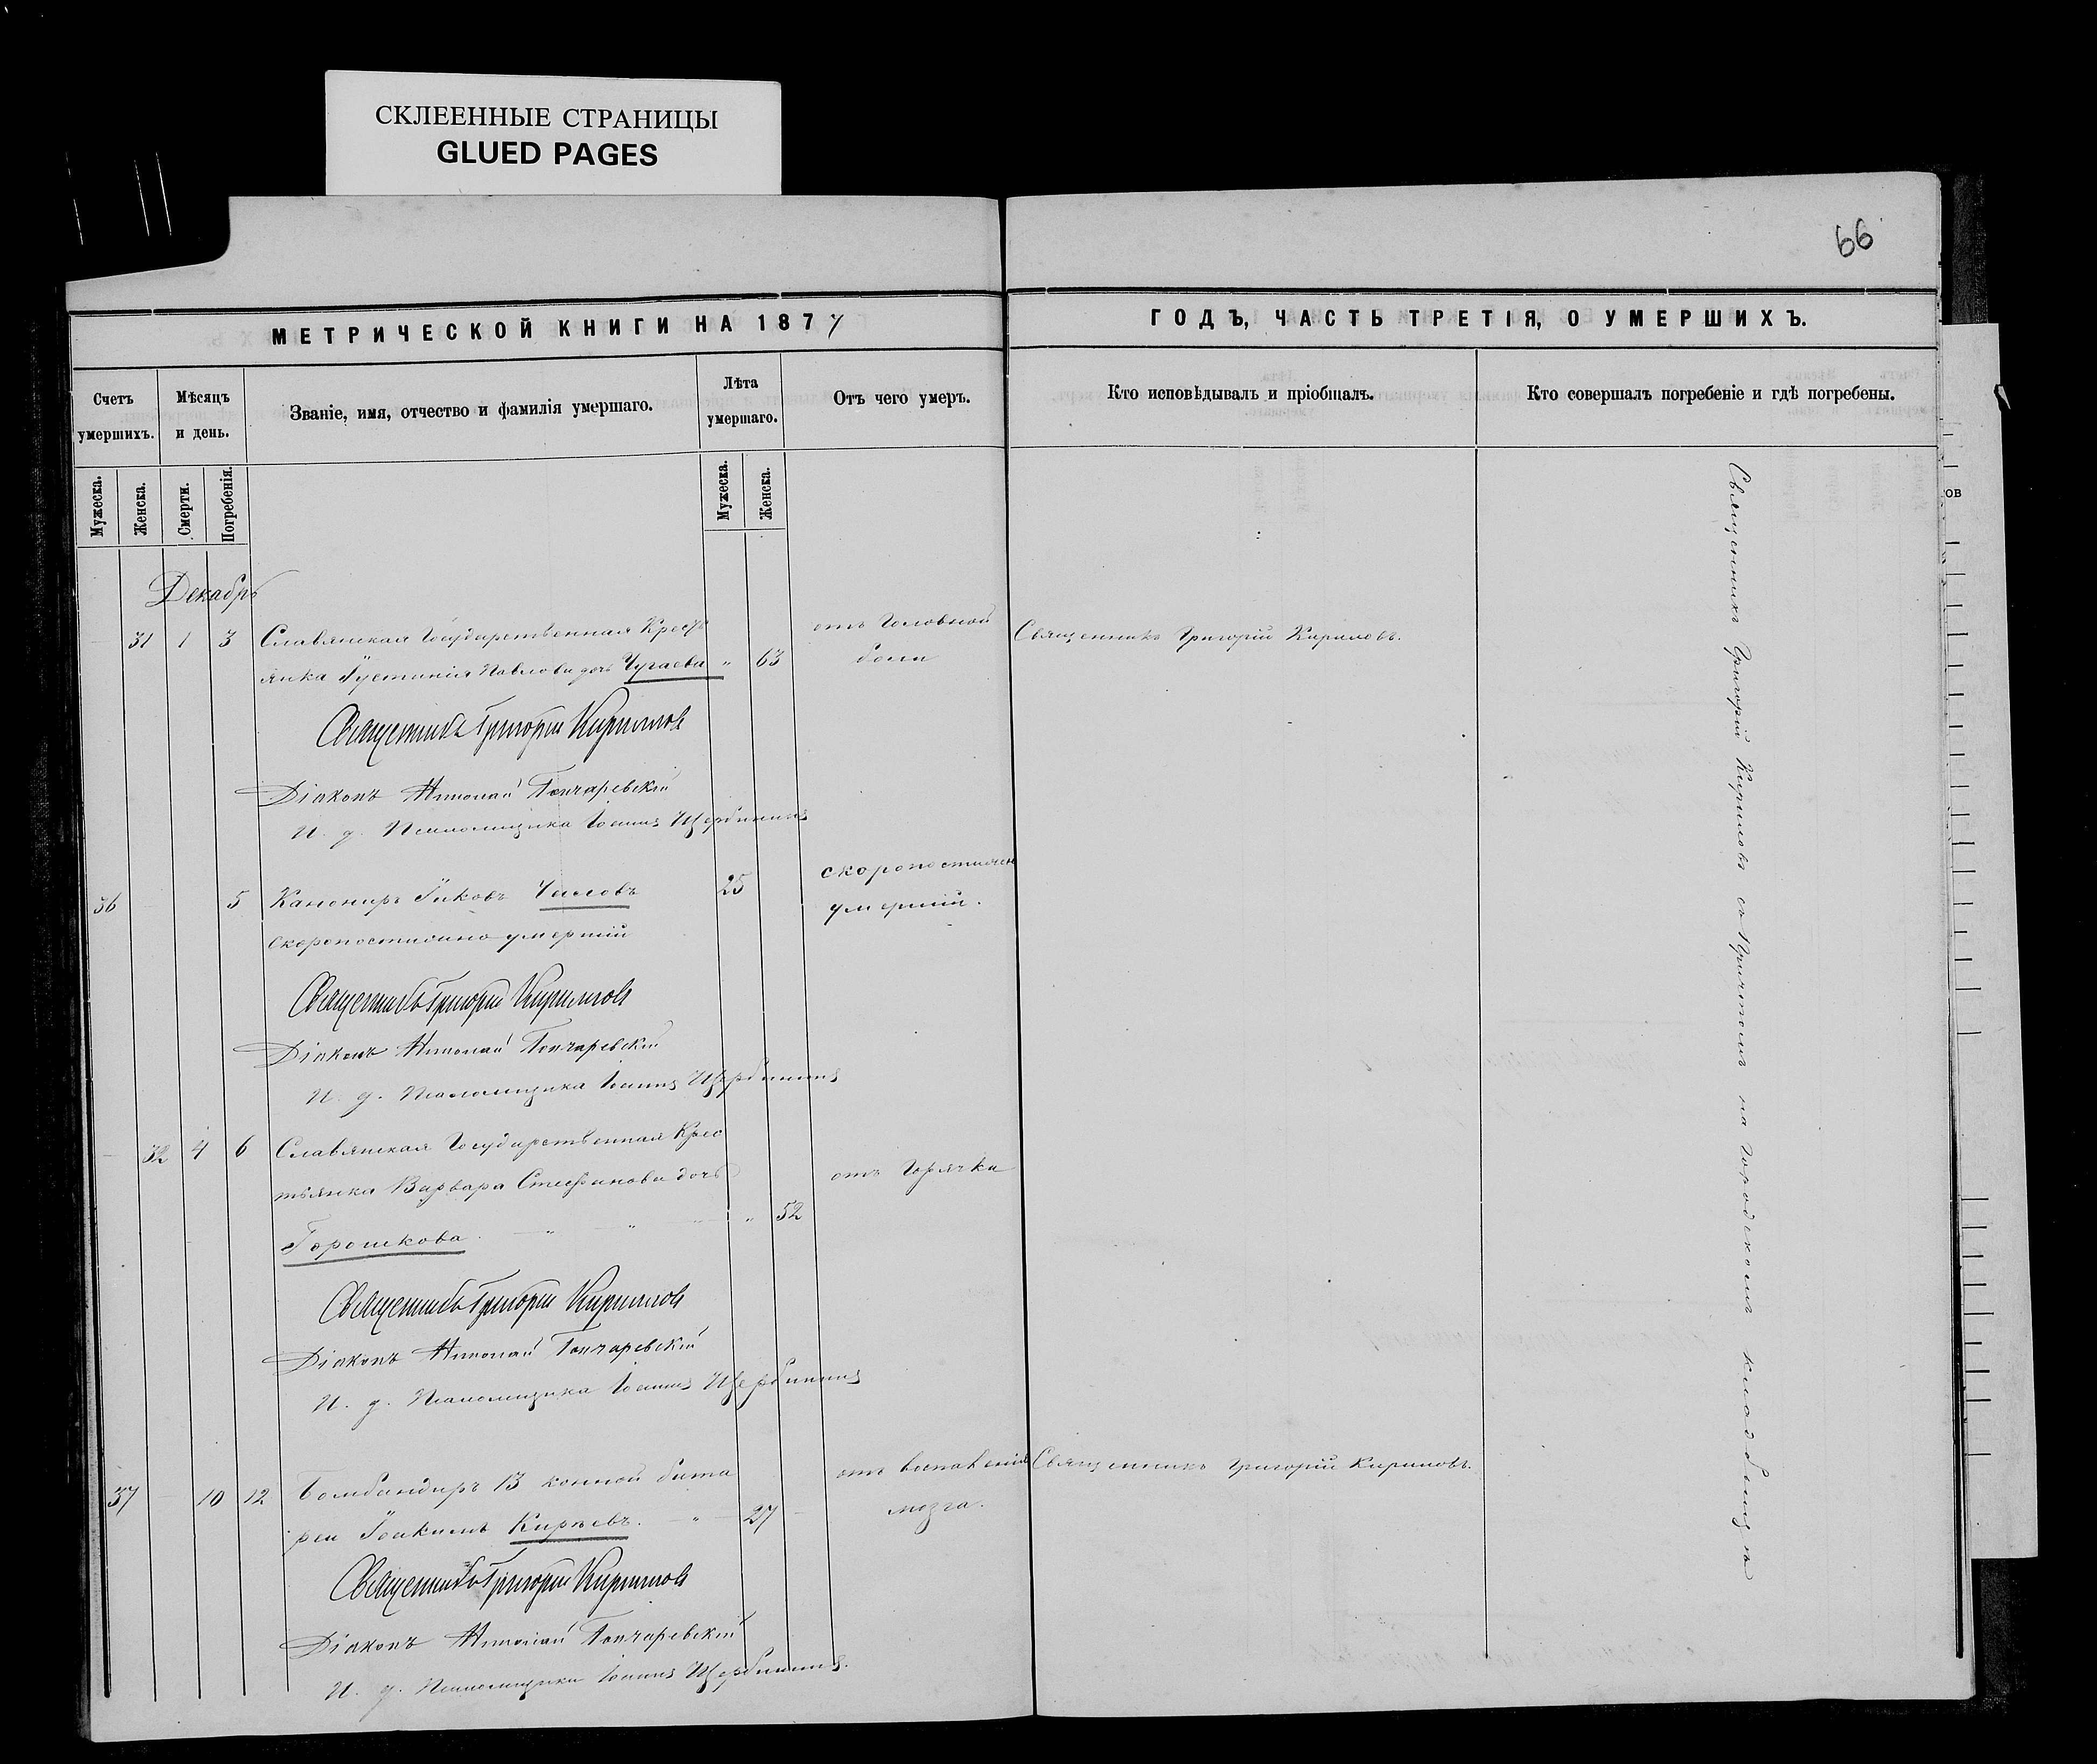 СКЛЕЕННЫЕ СТРАНИЦЫ
GLUED PAGES
66
МЕТРИЧЕСКОЙ КНИГИ НА 1877
ГОДЪ, ЧАСТЬ ТРЕТІЯ, О УМЕРШИХЪ.
Счетъ умершихъ.
Мѣсяцъ и день.
Званіе, имя, отчество и фамилія умершаго.
Лѣта умершаго.
Отъ чего умеръ.
Кто исповѣдывалъ и пріобщалъ.
Кто совершалъ погребеніе и гдѣ погребены.
Мужеска.
Женска.
Смерти.
Погребенія.
Мужеска.
Женска.
Декабрь
31 1 3 Славянская Государственная Кресть отъ Головной Священникъ Григорій Кириловъ.
янка Іустинія Павлова дочь Чугаева „ 63 боли
Священникъ Григорій Кириловъ
Діаконъ Николай Гончаревскій
И. д. Псаломщика Іоаннъ Щербининъ
36 5 Канониръ Яковъ 25 скоропостижно
скоропостижно умершій умершій.
Священникъ Григорій Кириловъ
Діаконъ Николай Гончаревскій
И. д. Псаломщика Іоаннъ Щербининъ
32 4 6 Славянская Государственная Крес
тьянка Варвара Стефанова дочь отъ Горячки
Горошкова „ 52
Священникъ Григорій Кириловъ
Діаконъ Николай Гончаревскій
И. д. Псаломщика Іоаннъ Щербининъ
37 10 12 Бомбандиръ 13 конной бата отъ воспаленія Священникъ Григорій Кириловъ.
реи Іоакимъ Кирѣевъ. „ 27 мозга.
Священникъ Григорій Кириловъ
Діаконъ Николай Гончаревскій
И. д. Псаломщика Іоаннъ Щербининъ.
Священникъ Григорій Кириловъ съ Причтомъ на Городскомъ кладбищѣ
ов